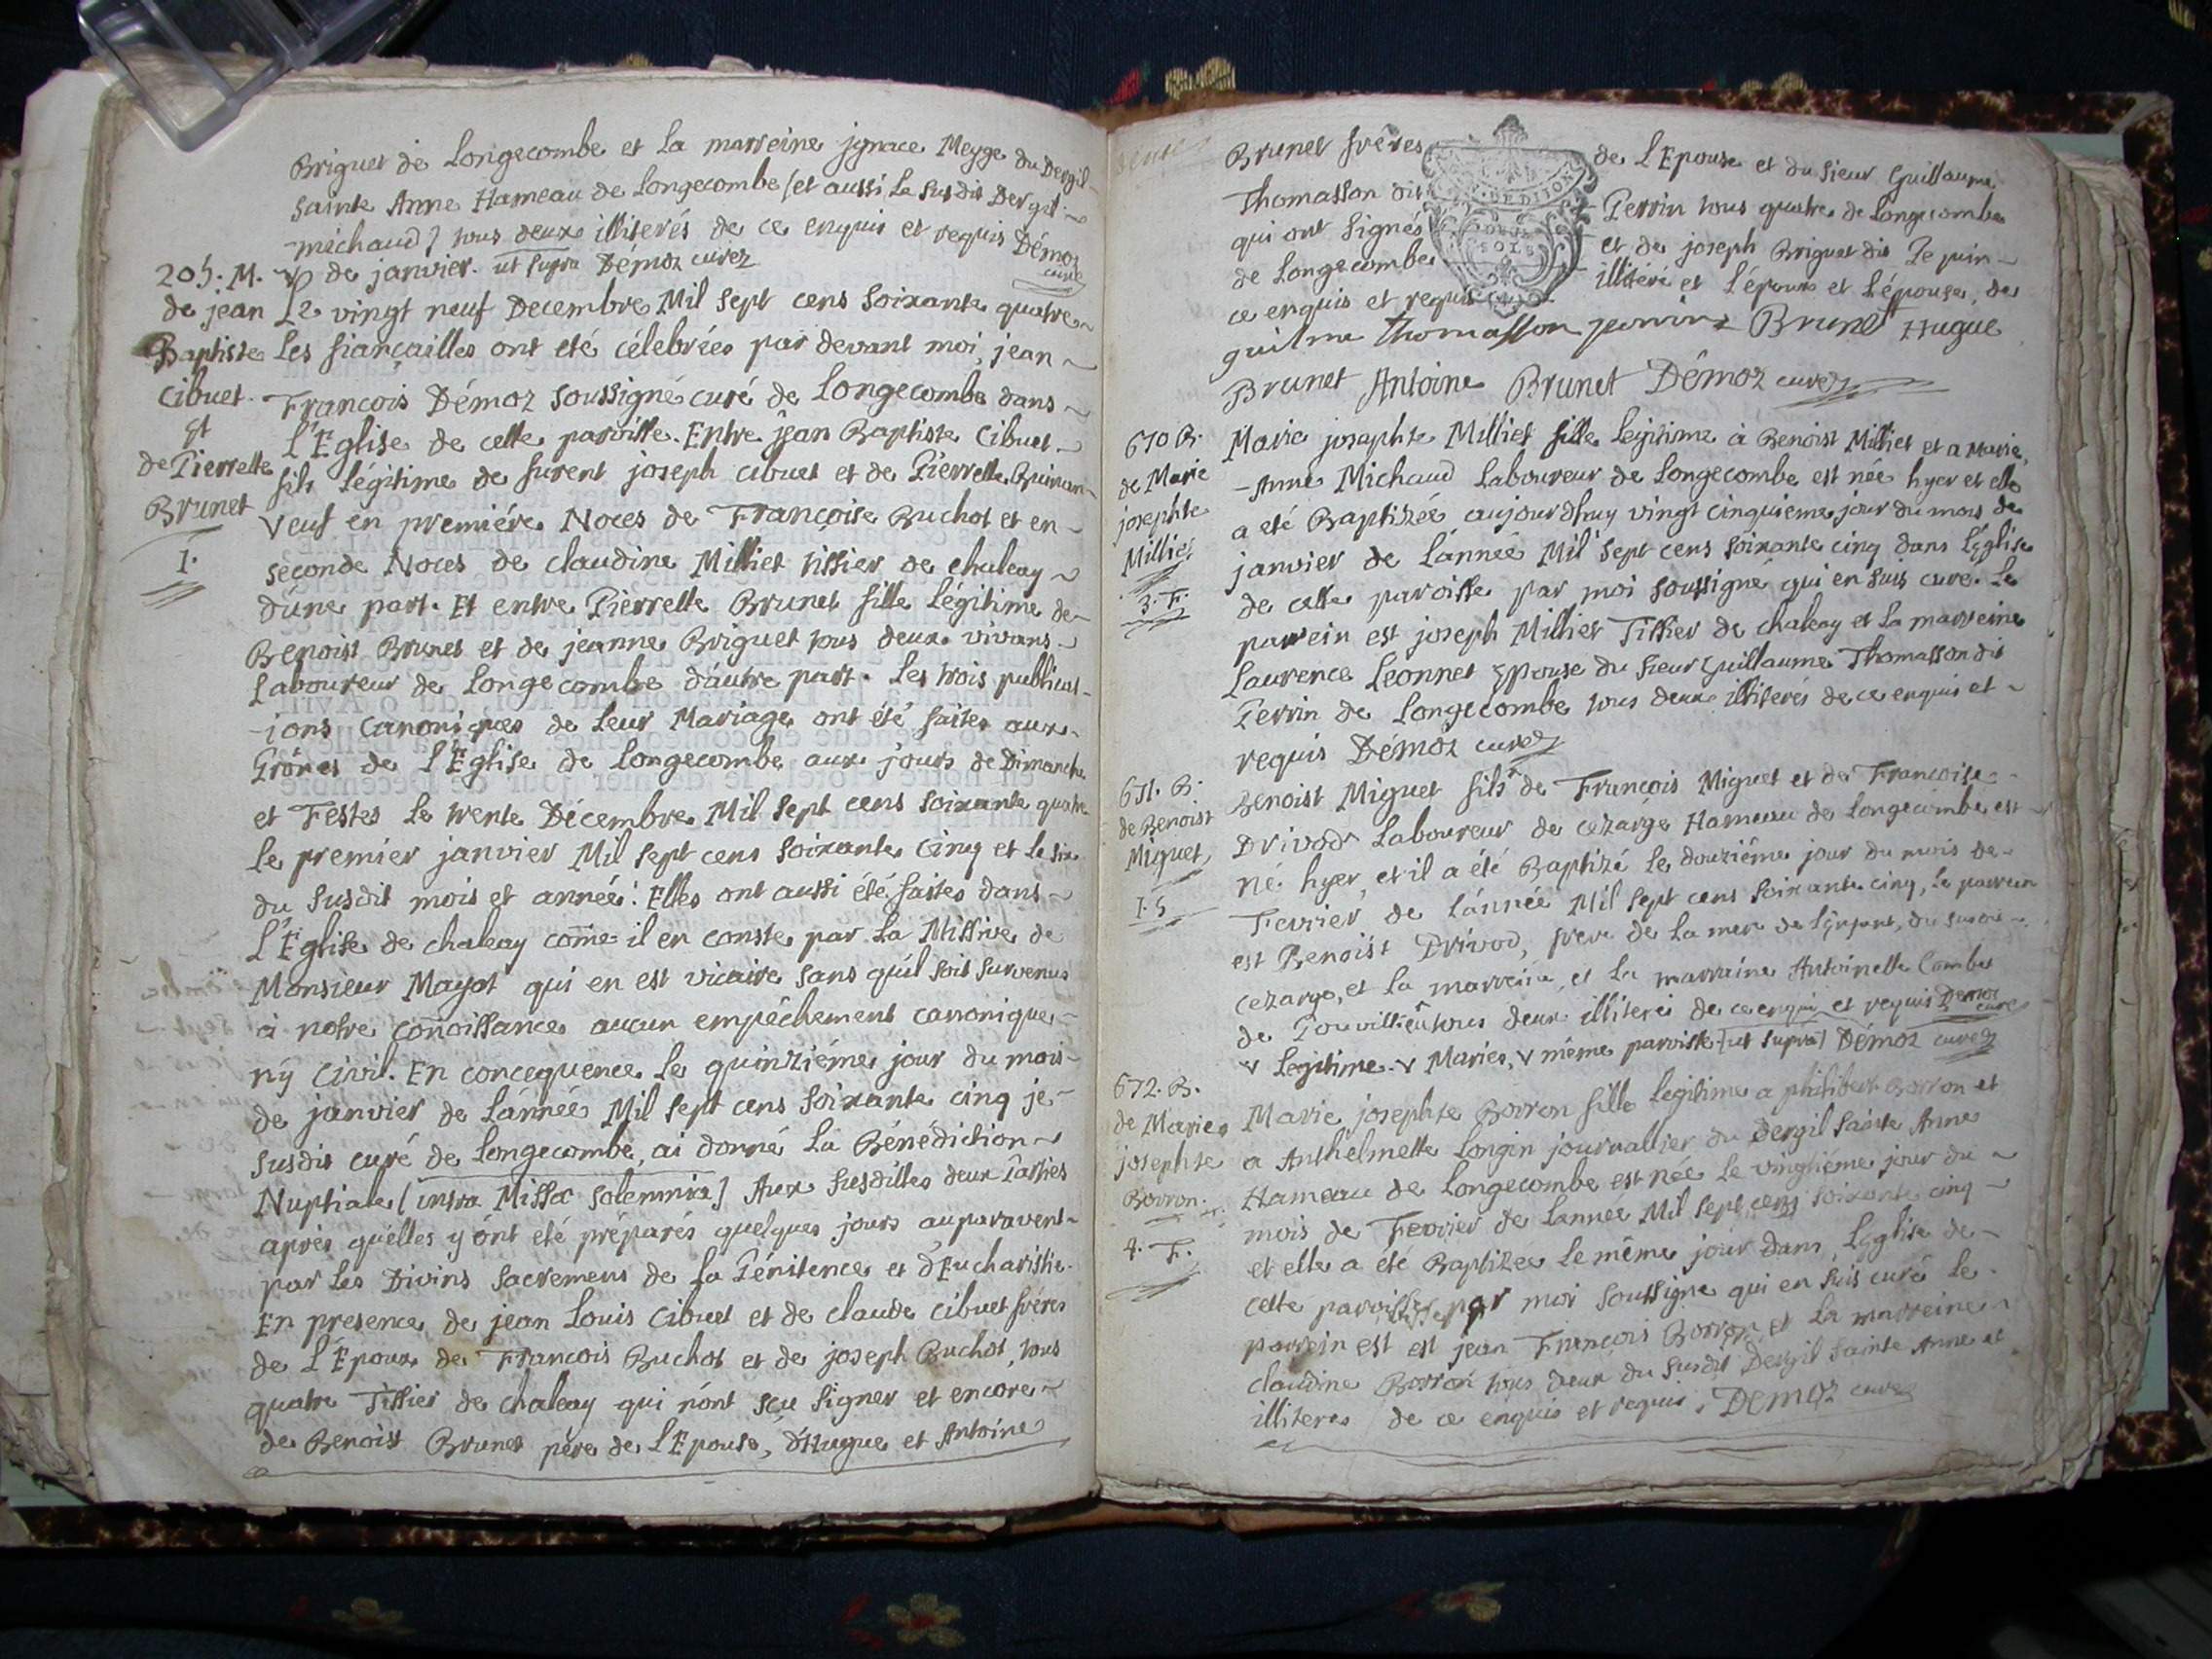 Briguet de Longecombe et la marreine jgnace Meyge du Dergil
sainte Anne Hameau de Longecombe (et aussi le susdit Dergil
michaud) tous deux illiterés de ce enquis et requis Démoz
curé
de janvier. ut supra Démoz curez
205. M.
de jean
Baptiste
Cibuet.
Et
de Pierrette
Brunet
1.
Le vingt neuf Decembre Mil sept cens soixante quatre
Les fiançailles ont eté célebrées par devant moi, jean
François Démoz soussigné curé de Longecombe dans
l'Eglise de cette paroisse. Entre jean Baptiste Cibuet
fils légitime de furent joseph cibuet et de Pierrette
veuf en premiére Noces de Françoise Buchot et en
séconde Noces de claudine Milliet tissier de chaleay
d'une part. Et entre Pierrette Brunet fille légitime de
Benoist Brunet et de jeanne Briguet tous deux vivans
Laboureur de Longecombe d'autre part. Les trois publicat-
ions Canoniques de leur Mariage ont été faites aux
Prônes de l'Eglise de Longecombe aux jours de Dimanche
et Festes le trente Décembre Mil sept cens soixante quatre
le premier janvier Mil sept cens soixante cinq et le six
du susdit mois et année: Elles ont aussi été faites dans
l'Eglise de chaleay come il en conste par la Missive de
Monsieur Mayot qui en est vicaire sans qu'il soit survenus
à notre conoissance aucun empêchement canonique
ny Civil. En concequence le quinziéme jour du mois
de janvier de l'année Mil sept cens soixante cinq je
susdit curé de Longecombe, ai donné la Bénédiction
Nuptiale [intra Missæ solemnia] Aux susdittes deux Parties
aprés qu'elles y ont eté préparés quelques jours auparavent
par les Divins sacremens de la Pénitence et d'Eucharistie.
En presence de jean Louis Cibuet et de claude cibuet fréres
de l'Epoux de François Buchot et de joseph Buchot, tous
quatre Tissier de chaleay qui n'ont sçu signer et encore
de Benoist Brunet pére de l'Epouse, d'Hugue et Antoine
Brunet fréres de l'Epouse et du sieur Guillaume
Thomasson dit Perrin tous quatre de Longecombe
qui ont signés et de joseph Briguet dit
de Longecombe illitéré et l'époux et l'épouse, de
ce enquis et requis
guilme Thomasson Brunet Hugue
Brunet Antoine Brunet Démoz curez
670 B.
de Marie
josephte
Milliet
3. F.
Marie josephte Milliet fille legitime à Benoist Milliet et a Marie
Anne Michaud Laboureur de Longecombe est née hyer et elle
a eté Baptizée aujourdhuy vingt cinquieme jour du mois de
janvier de l'année Mil sept cens soixante cinq dans l'Eglise
de cette paroisse par moi soussigné qui en suis curé. Le
parrein est joseph Milliet Tissier de chaleay et la marreine
Laurence Leonnet Epouse du sieur Guillaume Thomasson dit
Perrin de Longecombe tous deux illiterés de ce enquis et
requis Démoz curez
671. B.
de Benoist
Miguet
1. G
Benoist Miguet fils de François Miguet et de Françoise
Drivod Laboureur de cezarge Hameau de Longecombe est
né hyer, et il a été Baptizé le douziéme jour du mois de
Fevrier de l'année Mil sept cens soixante cinq, le parrein
est Benoist Drivod, frere de la mere de l'Enfant, du susdit
cezarge, et la marreine, et la marraine Antoinette Combet
de tous deux illiterés de ce enqui et requis Demoz
curé
v Legitime. v Maries, v même paroisse [ut supra] Démoz curez
672. B.
de Marie
josephte
Borron.
4. F.
Marie josephte Borron fille legitime a philibert Borron et
a Anthelmette Longin journallier du Dergil sainte Anne
Hameau de Longecombe est née le vingtiéme jour du
mois de Fevrier de l'année Mil sept cens soixante cinq
et elle a été Baptizée le même jour dans l'Eglise de
cette paroisse par moi soussigné qui en suis curé le
parrein est est jean François Borron et la marreine
claudine Borron tous deux du susdit Dergil sainte Anne et
illiteres de ce enquis et requis. Demoz curez